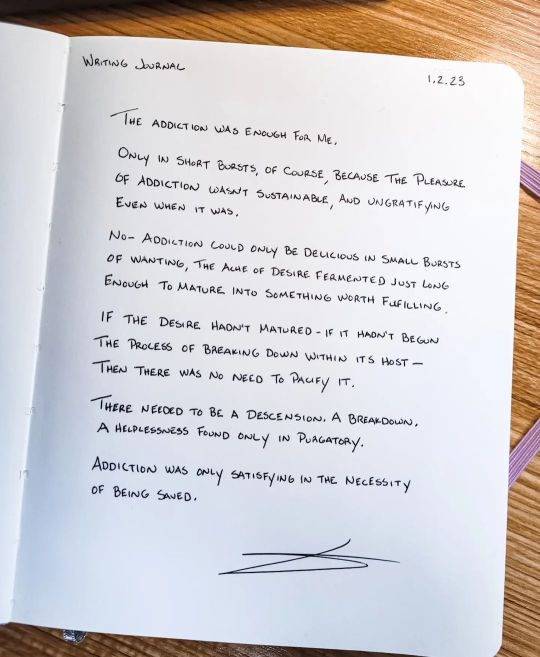 WRITING JOURNAL
1.2.23
THE ADDICTION WAS ENOUGH FOR ME.
ONLY IN SHORT BURSTS, OF COURSE, BECAUSE THE PLEASURE
OF ADDICTION WASN'T SUSTAINABLE, AND UNGRATIFYING
EVEN WHEN IT WAS.
NO- ADDICTION COULD ONLY BE DELICIOUS IN SMALL BURSTS
OF WANTING, THE ACHE OF DESIRE FERMENTED JUST LONG
ENOUGH TO MATURE INTO SOMETHING WORTH FULFILLING.
IF THE DESIRE HADN'T MATURED - IF IT HADN'T BEGUN
THE PROCESS OF BREAKING DOWN WITHIN ITS HOST —
THEN THERE WAS NO NEED TO PACIFY IT.
THERE NEEDED TO BE A DESCENSION. A BREAKDOWN.
A HELPLESSNESS FOUND ONLY IN PURGATORY.
ADDICTION WAS ONLY SATISFYING IN THE NECESSITY
OF BEING SAVED.